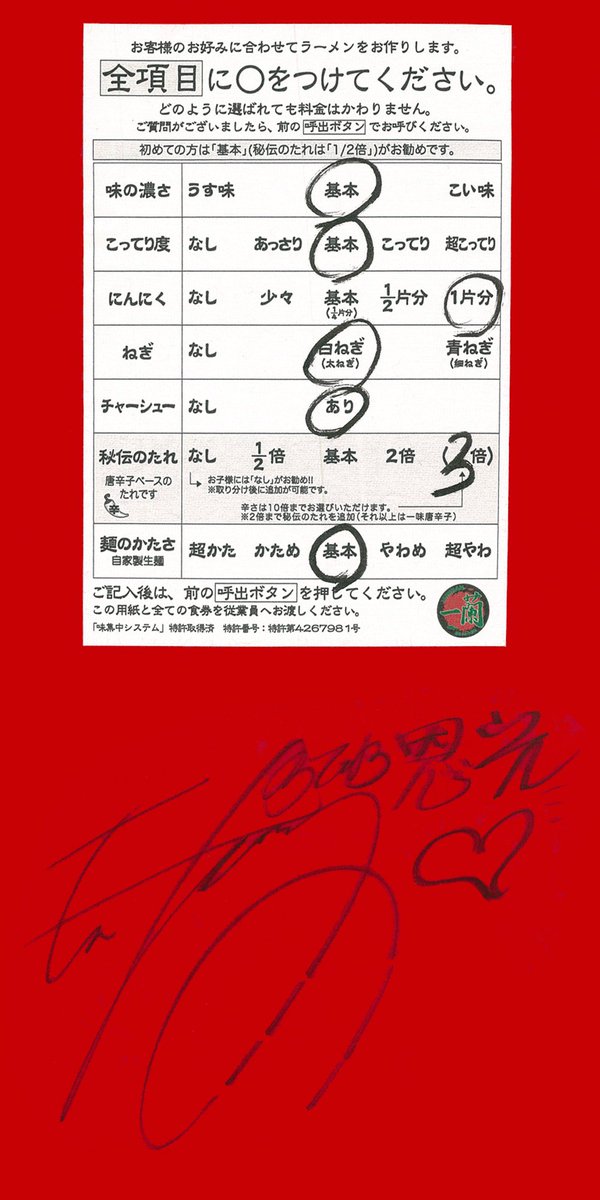 お客様のお好みに合わせてラーメンをお作りします。
全項目に○をつけてください。
どのように選ばれても料金はかわりません。
ご質問がございましたら、前の呼出ボタンでお呼びください。
初めての方は「基本」(秘伝のたれは「1/2倍」)がお勧めです。
味の濃さ うす味 基本 こい味
こってり度 なし あっさり 基本 こってり 超こってり
にんにく なし 少々 基本 1/2片分 1片分
(1/4片分)
ねぎ なし 白ねぎ 青ねぎ
(太ねぎ) (細ねぎ)
チャーシュー なし あり
秘伝のたれ なし 1/2倍 基本 2倍 (3倍)
唐辛子ベースの
たれです
辛
お子様には「なし」がお勧め!!
※取り分け後に追加が可能です。
辛さは10倍までお選びいただけます。
※2倍まで秘伝のたれを追加(それ以上は一味唐辛子)
麺のかたさ 超かた かため 基本 やわめ 超やわ
自家製生麺
ご記入後は、前の呼出ボタンを押してください。
この用紙と全ての食券を従業員へお渡しください。
「味集中システム」特許取得済 特許番号:特許第4267981号
一蘭